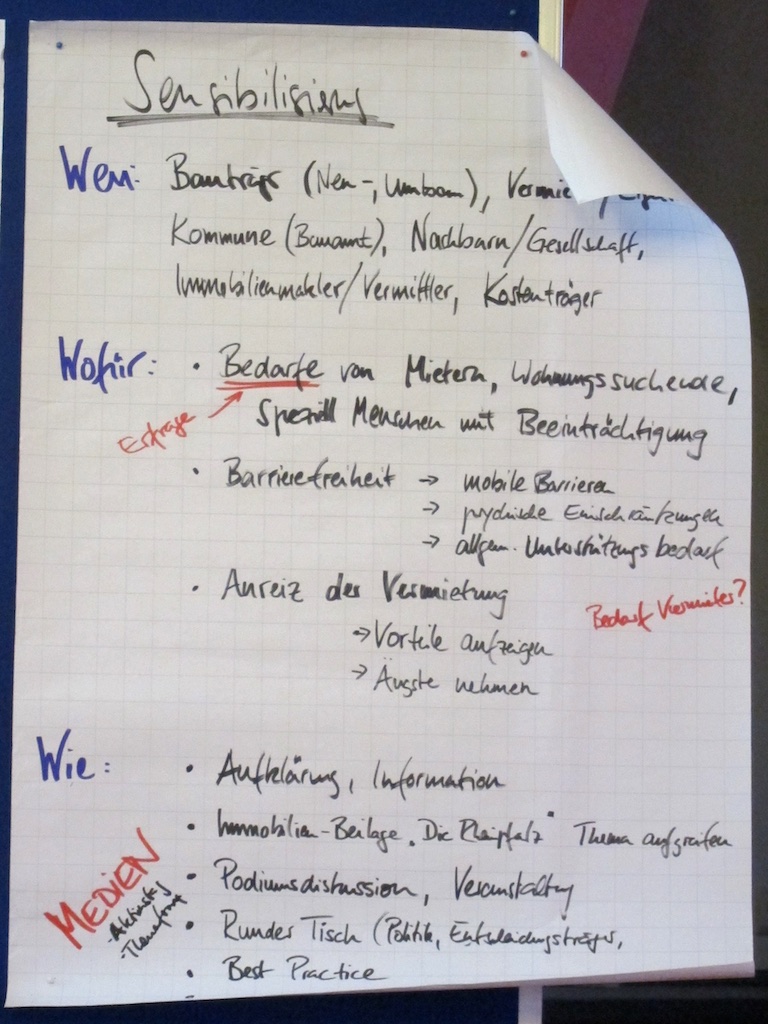 Sensibilisierung
Wen: Bauträger (Neu-, Umbau), Vermie
Kommune (Bauamt), Nachbarn/Gesellschaft,
Immobilienmakler/Vermittler, Kostenträger
Wofür: • Bedarfe von Mietern, Wohnungssuchende,
speziell Menschen mit Beeinträchtigung
• Barrierefreiheit → mobile Barrieren
→ psychische Einschränkungen
→ allgem. Unterstützungsbedarf
• Anreiz der Vermietung
Bedarf Vermieter?
→ Vorteile aufzeigen
→ Ängste nehmen
Wie: • Aufklärung, Information
• Immobilien-Beilage „Die Rheinpfalz" Thema aufgreifen
MEDIEN
• Podiumsdiskussion, Veranstaltung
-Aktionstag
• Runder Tisch (Politik, Entscheidungsträger,
• Best Practice